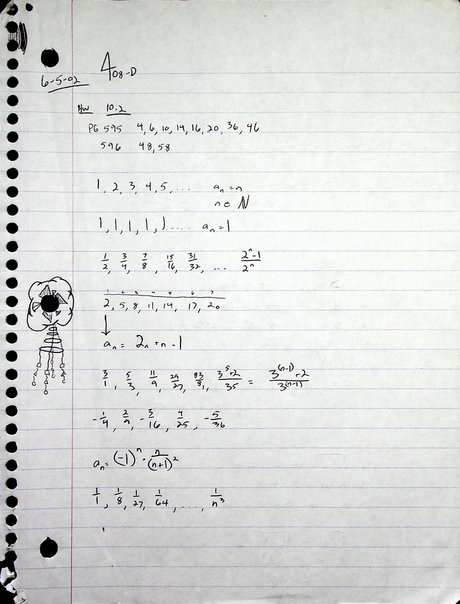 6-5-02 408-D
HW 10.2
PG 595 4, 6, 10, 14, 16, 20, 36, 46
596 48, 58
1, 2, 3, 4, 5, ... aₙ = n
n ∈ ℕ
1, 1, 1, 1, 1, ... aₙ = 1
1/2, 3/4, 7/8, 15/16, 31/32, ... (2ⁿ-1)/2ⁿ
2, 5, 8, 11, 14, 17, 20
aₙ = 2n + n - 1
3/1, 5/3, 11/9, 29/27, 83/81, (3⁵+2)/35 = (3⁽ⁿ⁻¹⁾+2)/3⁽ⁿ⁻¹⁾
-1/4, 2/9, -3/16, 4/25, -5/36
aₙ = (-1)ⁿ · n/(n+1)²
1/1, 1/8, 1/27, 1/64, ..., 1/n³